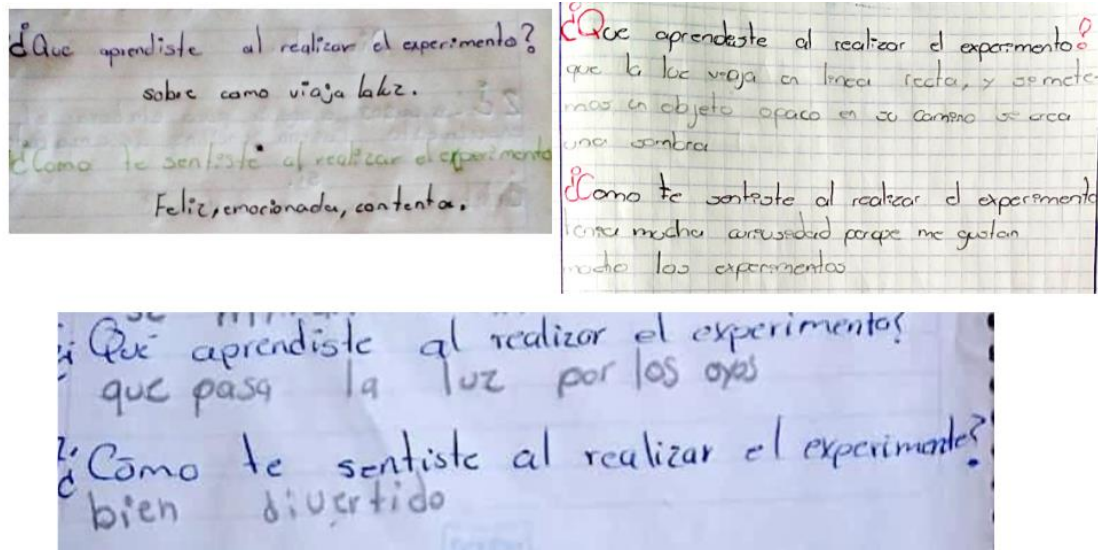 ¿Que aprendiste al realizar el experimento?
sobre como viaja la luz.
¿Como te sentiste al realizar el experimento
Feliz, emocionada, contenta.
¿Que aprendeste al realizar el experemento?
que la luc viaja en linea recta, y se mete-
mos un objeto opaco en su camino se crea
una sombra
¿Como te senteste al realizar el experemento
tenia mucha cureusedad porqe me gustan
mucho los experementos
¿Qué aprendiste al realizar el experimento?
que pasa la luz por los oyos
¿Cómo te sentiste al realizar el experimento?
bien divertido